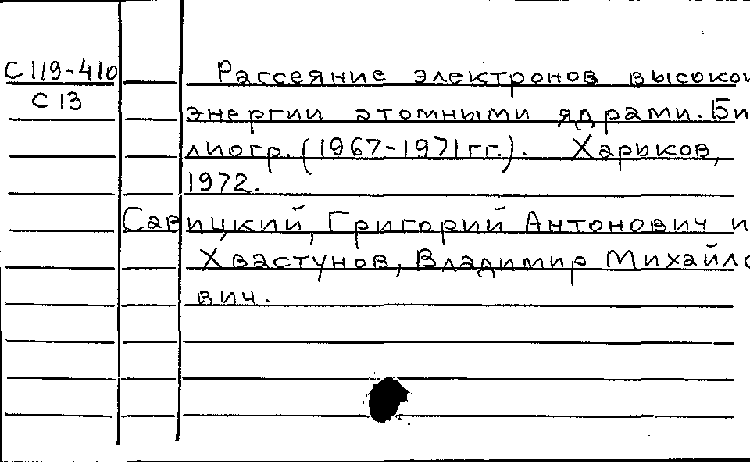 С119-410
С13
Рассеяние электронов высокой
энергии атомными ядрами. Биб
лиогр. (1967-1971гг.). Харьков,
1972.
Савицкий, Григорий Антонович и
Хвастунов, Владимир Михайло
вич.